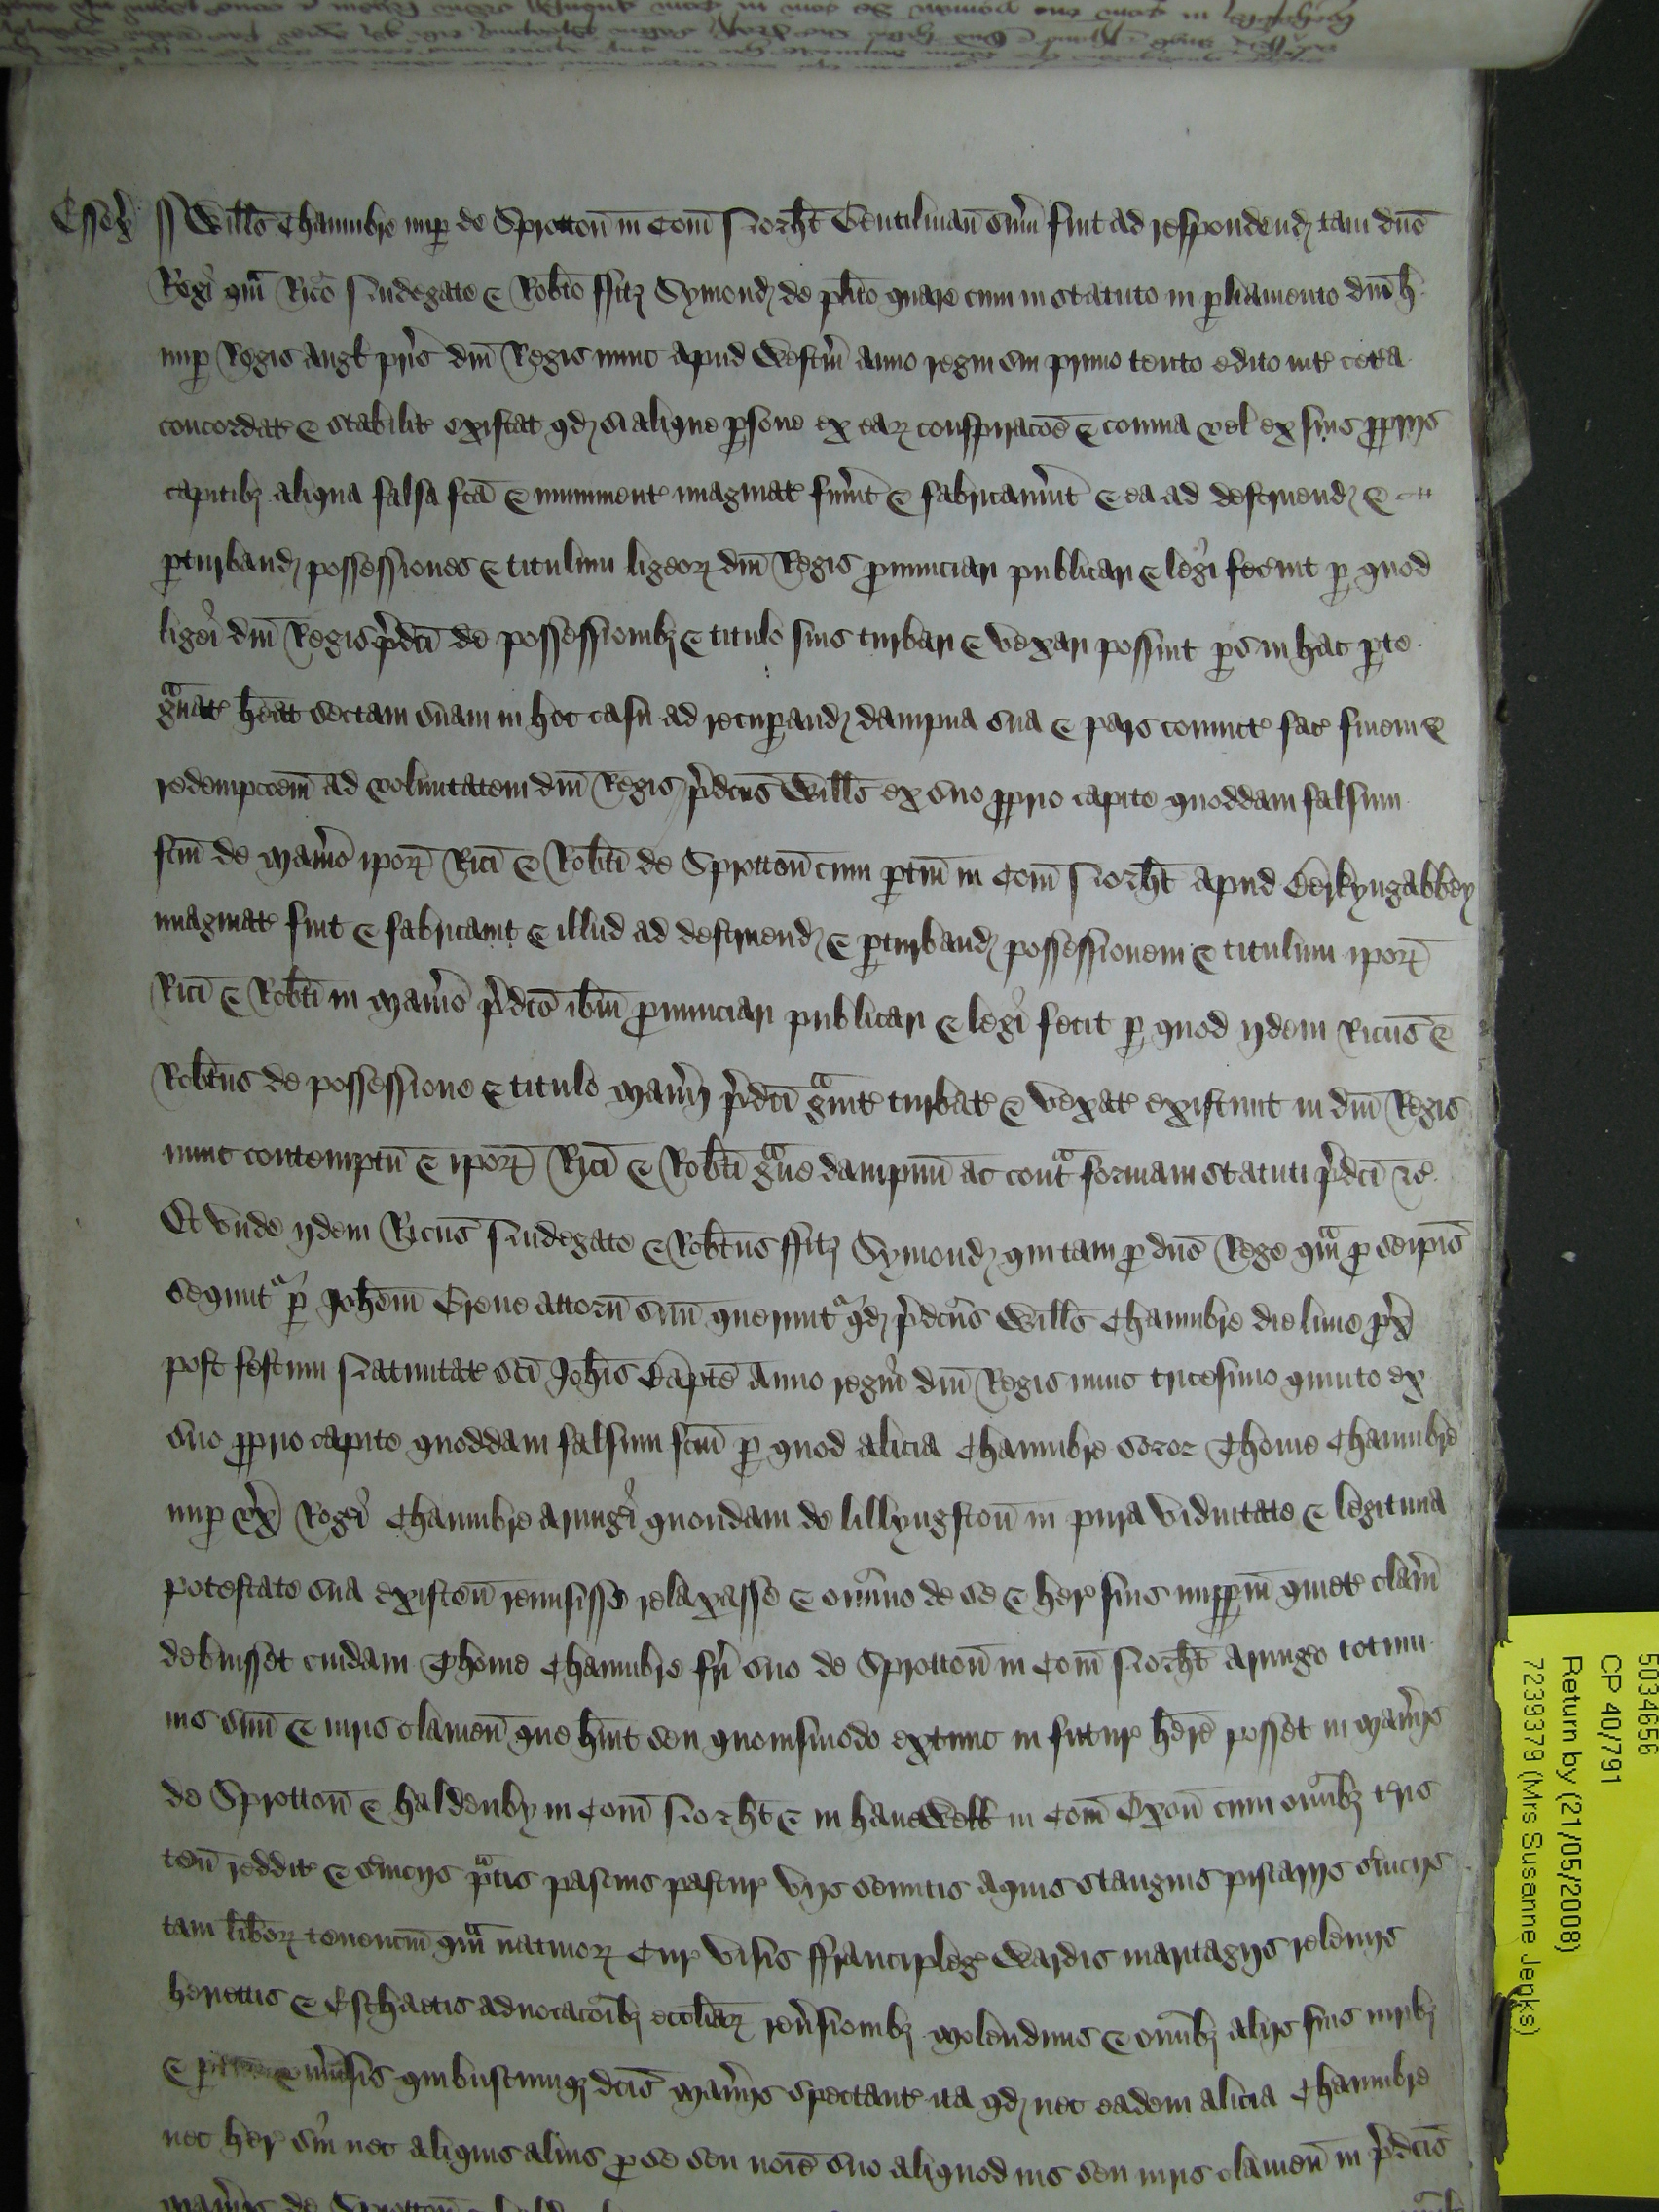 Essex̃ ss Wills Chaumbre nup de Sprottoñ in Com̃ Norht Gentilmañ sum̃ fuit ad respondend tam dño
Regi qm̃ Rico Nudegate & Robto ffitz Symond de plito quare cum in statuto in pliamento dñi h
nup Regis Angl pris dñi Regis nunc apud Westm̃ anno regni sui primo tento edito int cetera
concordat & stabilit existat qd si alique psone ex ear conspiracõe & covina vel ex suis pprijs
capitibz aliqua falsa fcã & muniment ymaginat fuint & fabricavint & ea ad destruend &
pturband possessiones & titulum ligeor dñi Regis pnunciari publicari & legi fecint p quod
ligei dñi Regis pdcĩ de possessionibz & titulo suis turbari & vexari possint ps in hac pte
gvat hẽat sectam suam in hoc casu ad recupand dampna sua & pars convict fac finem &
redempcõem ad voluntatem dñi Regis pdcũs Wills ex suo pprio capite quoddam falsum
fcm̃ de Manio ipor Rici & Robti de Sprottoñ cum ptiñ in Com̃ Norht apud Berkyngabbey
ymaginat fuit & fabricavit & illud ad destruend & pturband possessionem & titulum ipor
Rici & Robti in Manio pdcõ ibm̃ pnunciari publicari & legi fecit p quod ijdem Ricus &
Robtus de possessione & titulo Manij pdcĩ gvit turbat & vexat existunt in dñi Regis
nunc contemptũ & ipor Rici & Robti gve dampnũ ac cont formam statuti pdcĩ &c
Et unde ijdem Ricus Nudegate & Robtus ffitz Symond qui tam p dño Rege qm̃ p seipis
sequnt p Johem Grene attorñ suũ querunt qd pdcũs Wills Chaumbre die lune px̃
post festum Nativitat sci Johis Bapte Anno regni dñi Regis nunc tricesimo quinto ex
suo pprio capite quoddam falsum fcm̃ p quod Alicia Chaumbre soror Thome Chaumbre
nup ux̃ Rogeri Chaumbre armigi quondam de lillyngstoñ in pura viduitate & legitima
potestate sua existeñ remisisse relaxasse & omnino de se & her suis imppm̃ quiet clam̃
debuisset cuidam Thome Chaumbre fri suo de Sprottoñ in Com̃ Norht armigo totum
ius suũ & iuris clameñ que huit seu quovismodo extunc in futur hẽre posset in Manijs
de Sprottoñ & haldenby in Com̃ Norht & in hanewell in Com̃ Oxoñ cum omibz tris
teñ reddit & svicijs ptis pascuis pastur vijs semitis aquis stangnis piscarijs svicijs
tam libor tenenciũ qm̃ nativor Cur visis ffrancipleg Wardis maritagijs relevijs
heriettis & Eschaetis advocacõibz ecclĩar revsionibz molendinis & omibz alijs suis iuribz
& quibuscumqz dcĩs Manijs spectant ita qd nec eadem Alicia Chaumbre
nec her sui nec aliquis alius p se seu noĩe suo aliquod ius seu iuris clameñ in pdcĩs
Manijs de Sprottoñ
5034656
CP 40/791
Return by (21/05/2008)
7239379 (Mrs Susanne Jenks)